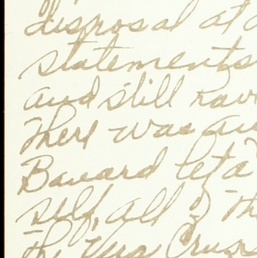 disposal at a
statements
and still have
There was an
Bavard let a
self, all of th
the Vera Cruz